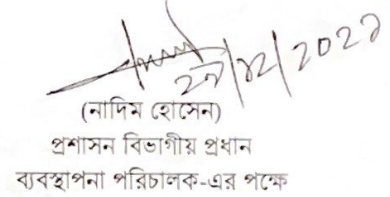 ২৭/১২/২০২১
(নাদিম হোসেন)
প্রশাসন বিভাগীয় প্রধান
ব্যবস্থাপনা পরিচালক-এর পক্ষে